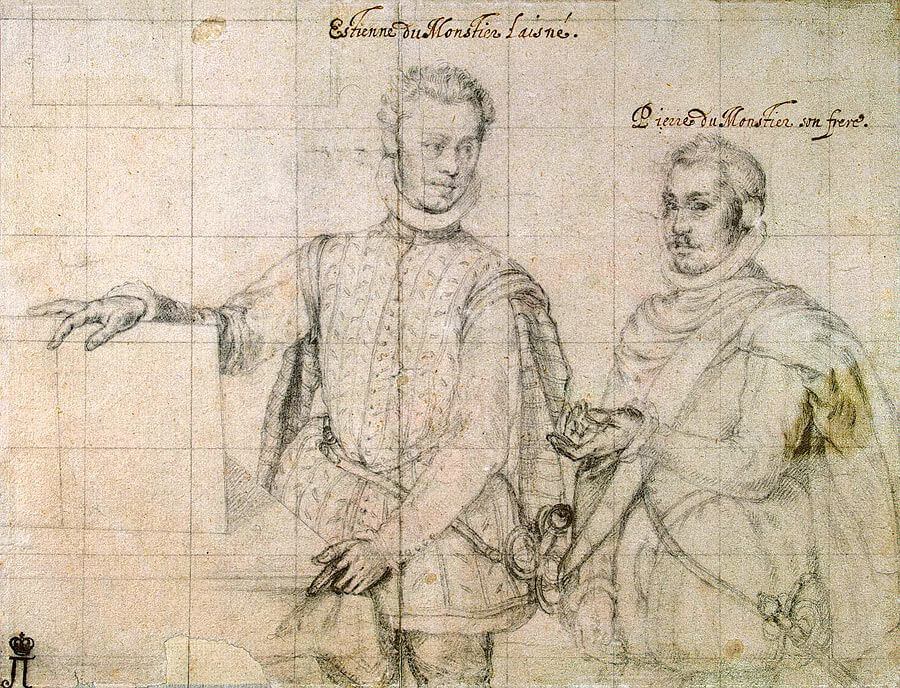 Estienne du Monstier Laisné.
Pierre du Monstier son frere.